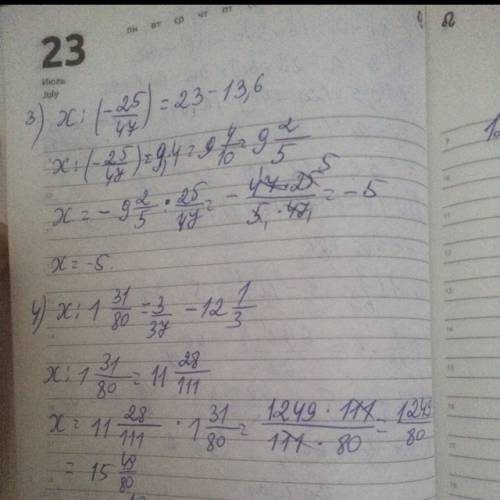 пн вт ср чт пт
23
Июль
July
3) x : (-25/47) = 23 - 13,6
x : (-25/47) = 9,4 = 9 4/10 = 9 2/5
x = - 9 2/5 : 25/47 = - 47·25/5·47 = - 5
x = -5.
4) x : 1 31/80 = 3/37 - 12 1/3
x : 1 31/80 = 11 28/111
x = 11 28/111 · 1 31/80 = 1249·111/111·80 = 1249/80
= 15 49/80